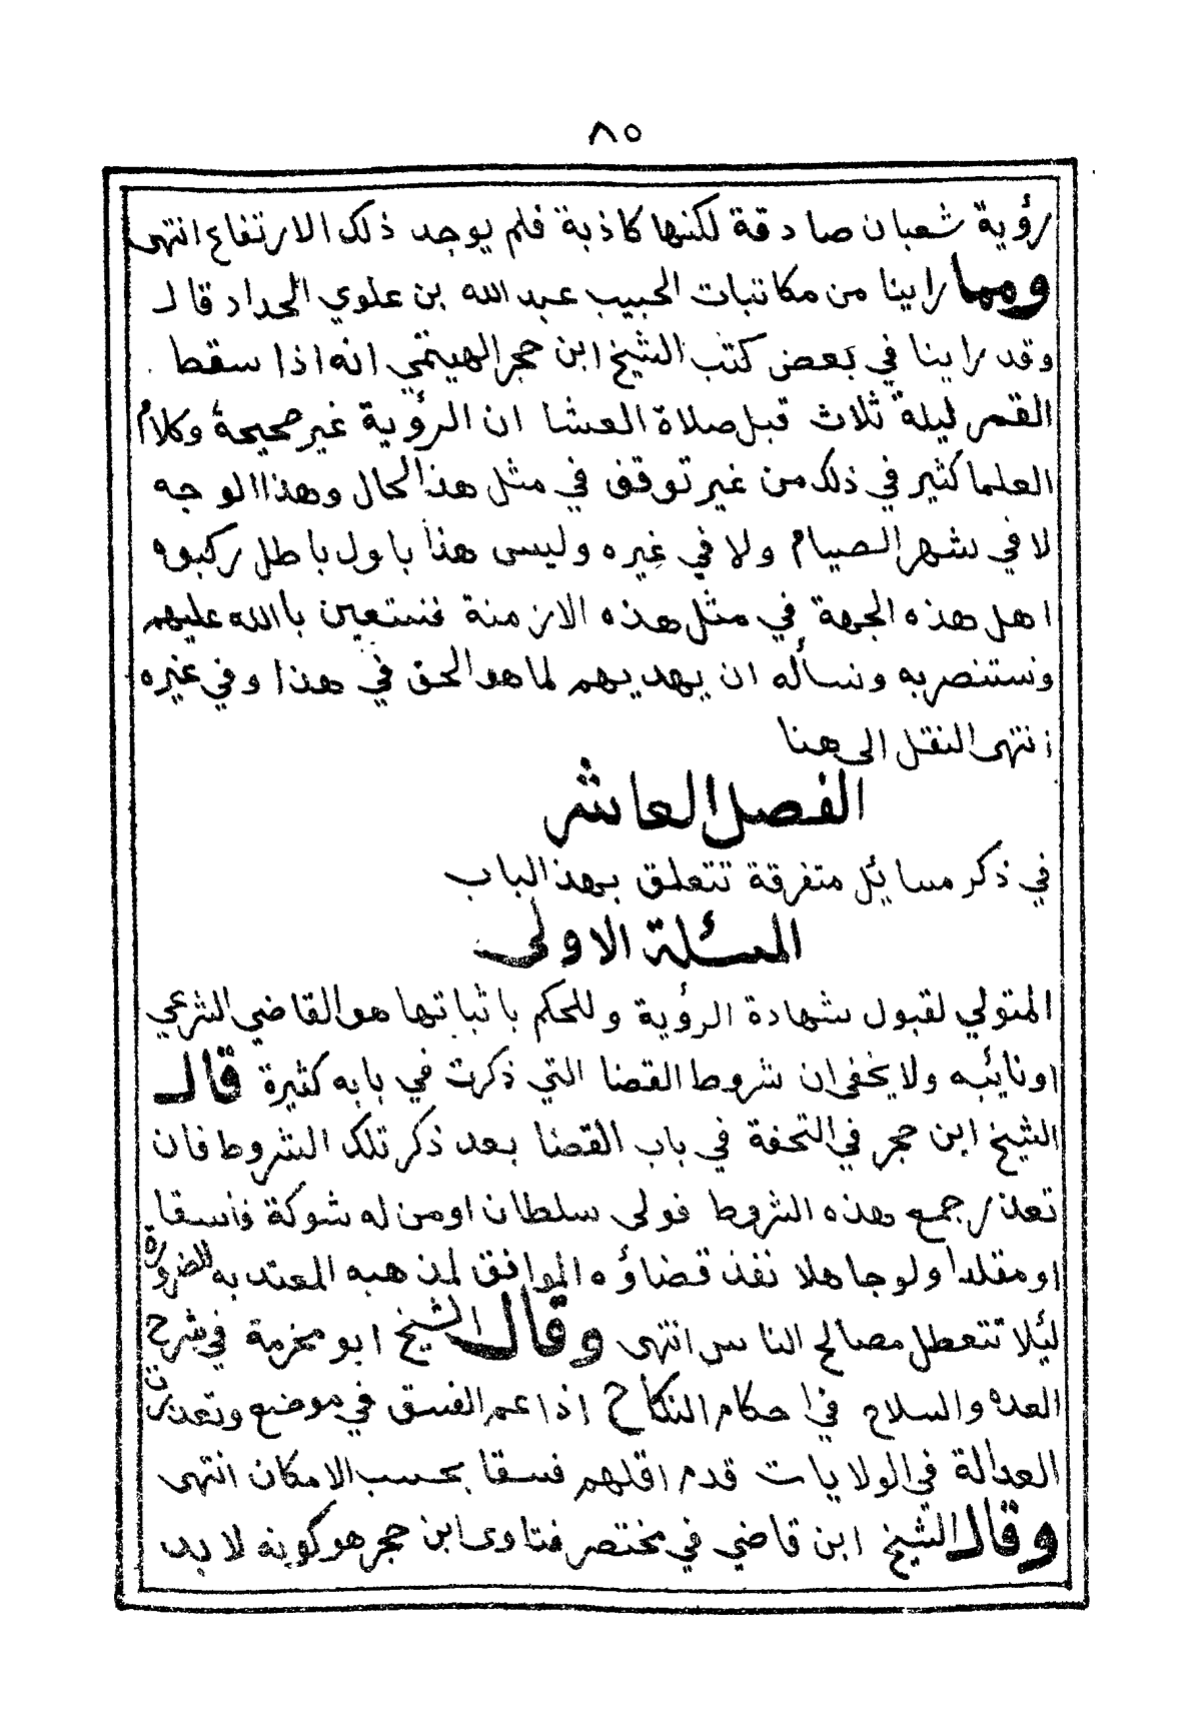 ٨٥
رؤية شعبان صادقة لكنها كاذبة فلم يوجد ذلك الارتفاع انتهى
ومما راينا من مكاتبات الحبيب عبد الله بن علوي الحداد قال
وقد راينا في بعض كتب الشيخ ابن حجر الهيتمي انه اذا سقط
القمر ليلة ثلاث قبل صلاة العشا ان الرؤية غير صحيحة وكلام
العلما كثير في ذلك من غير توقف في مثل هذا الحال وهذا الوجه
لا في شهر الصيام ولا في غيره وليس هذا باول باطل ركبوه
اهل هذه الجهة في مثل هذه الازمنة فنستعين بالله عليهم
ونستنصر به ونسأله ان يهديهم لما هو الحق في هذا وفي غيره
انتهى النقل الى هنا
الفصل العاشر
في ذكر مسائل متفرقة تتعلق بهذا الباب
المسئلة الاولى
المتولي لقبول شهادة الرؤية وللحكم باثباتها هو القاضي الشرعي
اونائبه ولا يخفى ان شروط القضا التي ذكرت في بابه كثيرة قال
الشيخ ابن حجر في التحفة في باب القضا بعد ذكر تلك الشروط فان
تعذر جمع هذه الشروط فولى سلطان اومن له شوكة فاسقا
اومقلدا ولوجاهلا نفذ قضاؤه الموافق لمذهبه المعتد به للضرورة
ليلا تتعطل مصالح الناس انتهى وقال الشيخ ابو مخرمة في شرح
العده والسلاح في احكام النكاح اذا عم الفسق في موضع وتعذرت
العدالة في الولايات قدم اقلهم فسقا بحسب الامكان انتهى
وقال الشيخ ابن قاضي في مختصر فتاوى ابن حجر هو كونه لا بد